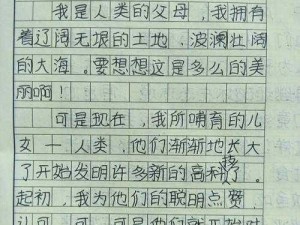 我是人类的父母，我拥有
着辽阔无垠的土地，波澜壮阔
的大海。要想想这是多么的美
丽啊！
可是现在，我所哺育的儿
女一人类，他们渐渐地长大
了开始发明许多新的高科技。
起初，我为他们的聪明点赞